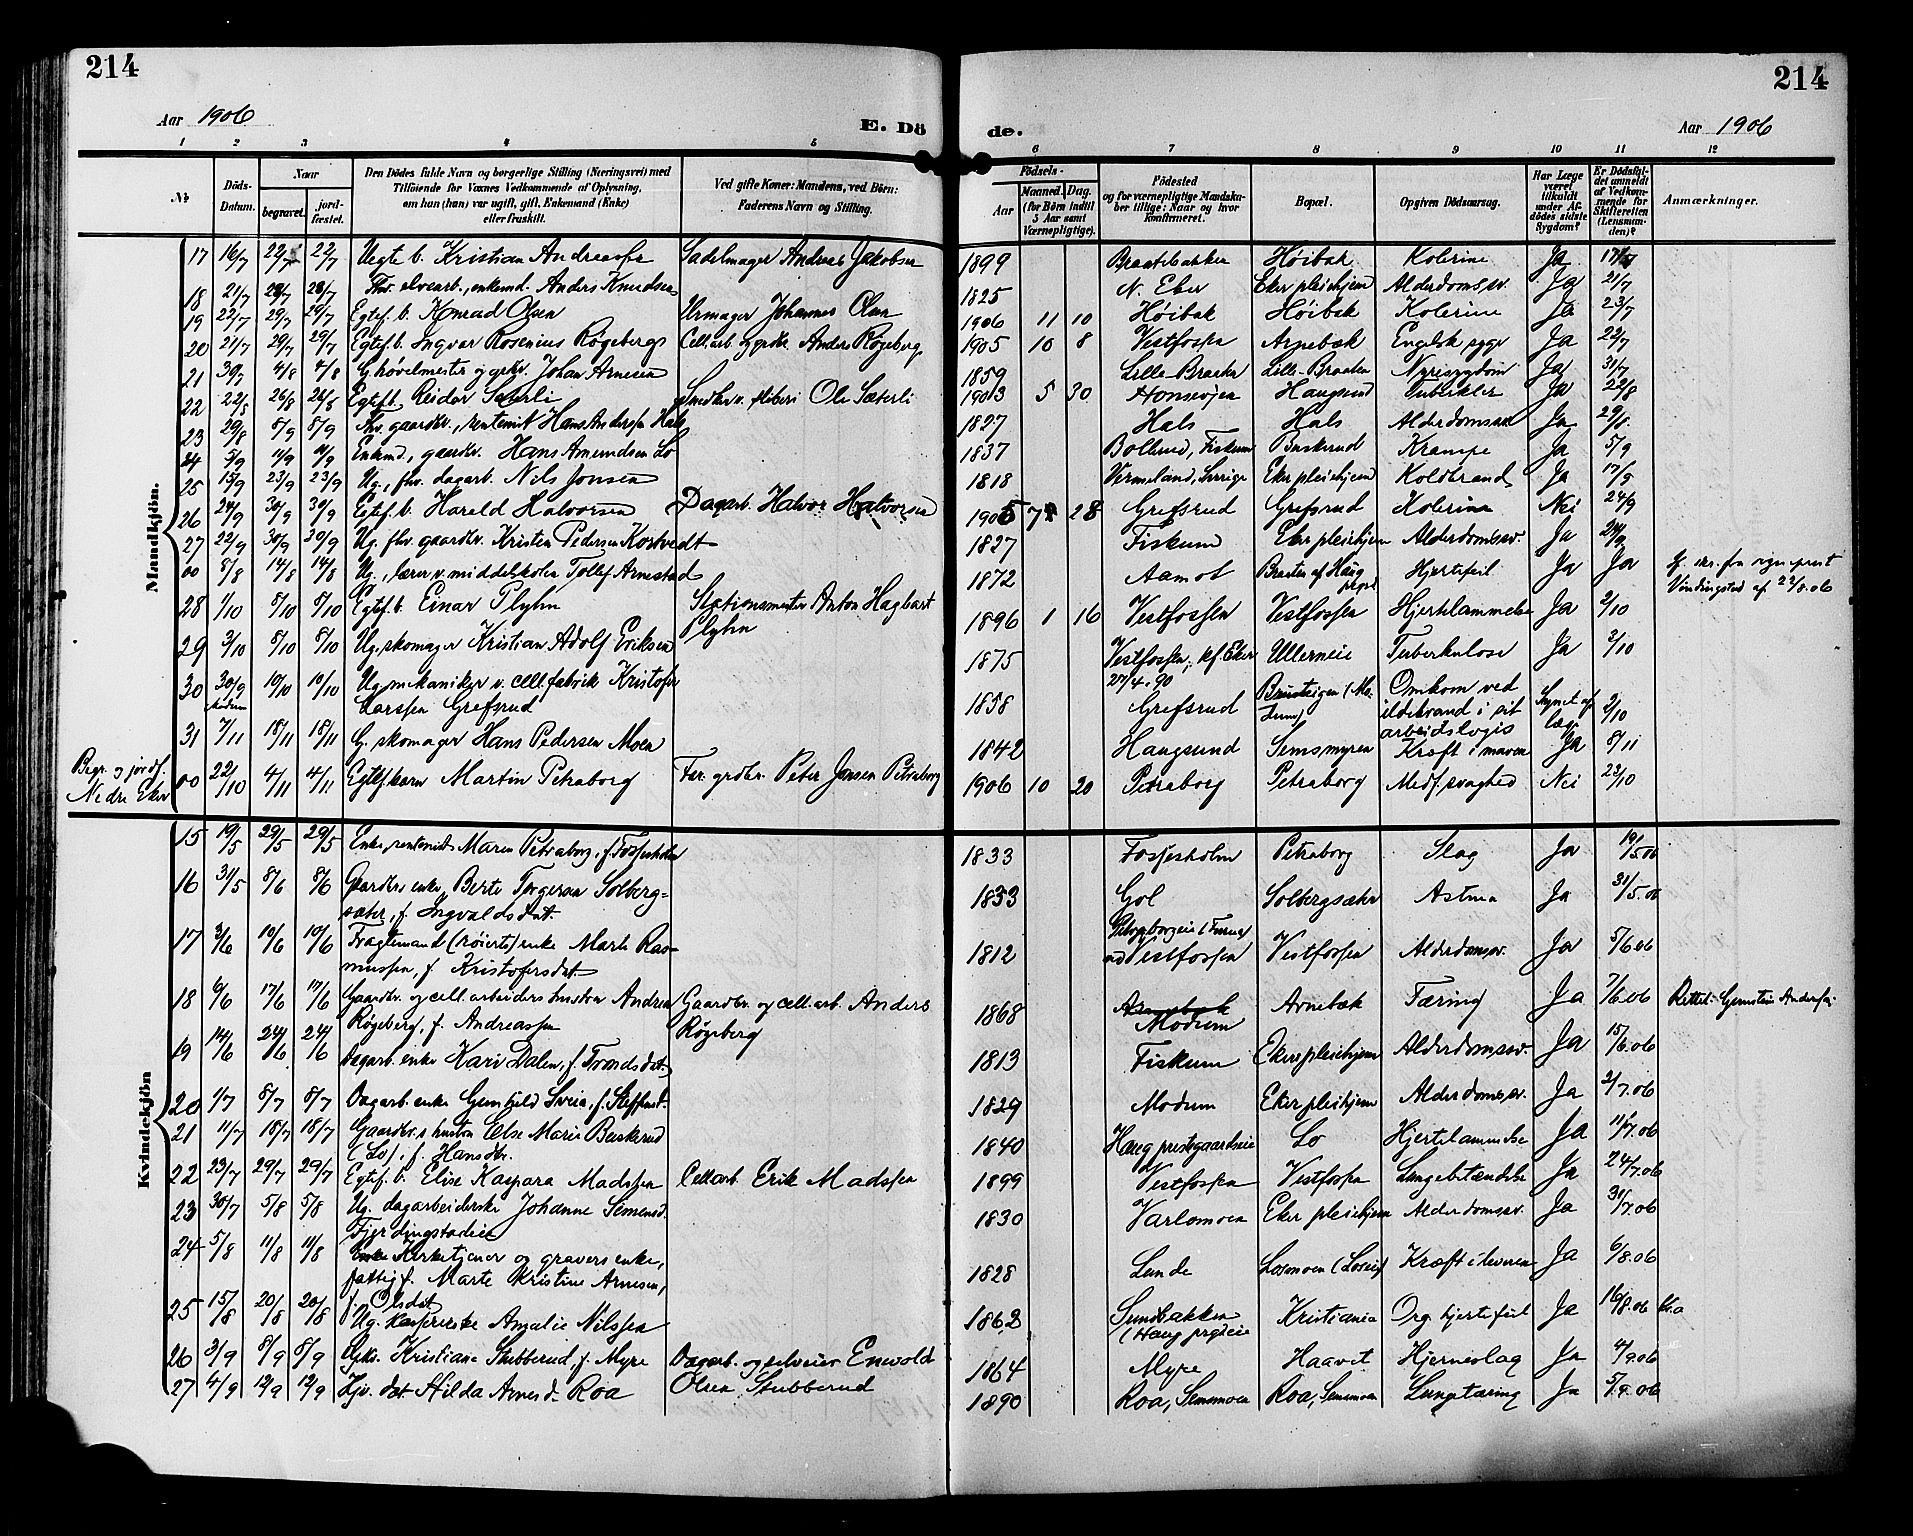 214
214
Aar 1906
E. Dö
de.
Aar 1906
1 2 3 4 5 6 7 8 9 10 11 12
№
Döds-Datum.
Naar
begravet.
jord-fæstet.
Den Dödes fulde Navn og borgerlige Stilling (Næringsvei) med
Tilföiende for Voxnes Vedkommende af Oplysning,
om hun (han) var ugift, gift, Enkemand (Enke)
eller fraskilt.
Ved gifte Koner: Mandens, ved Börn:
Faderens Navn og Stilling.
Födsels-
Aar
Maaned. Dag.
(for Börn indtil
5 Aar samt
Værnepligtige).
Födested
og for værnepligtige Mandska-
ber tillige: Naar og hvor
konfirmeret.
Bopæl.
Opgiven Dödsaarsag.
Har Læge
været
tilkaldt
under Af-
dödes sidste
Sygdom?
Er Dödsfal-
det anmeldt
af Vedkom-
mende for
Skifteretten
(Lensman-
den)?
Anmærkninger.
Mandkjön.
17 16/7 22/7 22/7 Uegte b. Kristian Andreassen Sadelmager Andreas Jakobsen 1899 Braatebakken Höibak Kolerine Ja
18 21/7 28/7 28/7 Fhv. elvearb., enkemd. Anders Knudsen 1825 N. Eker Eker pleiehjem Alderdomssv. Ja 21/7
19 22/7 29/7 29/7 Egtef. b. Konrad Olsen Urmager Johannes Olsen 1906 11 10 Höibak Höibak Kolerine Ja 23/7
20 21/7 29/7 29/7 Egtef. b. Ingvar Rosenius Røgeberg Cell.arb. og grdbr. Anders Røgeberg 1905 10 8 Vestfossen Arnebæk Engelsk syge Ja 22/7
21 30/7 4/8 4/8 G. hövelmester og grdbr. Johan Arnesen 1859 Lille-Braaten Lille-Braaten Nyresygdom Ja 31/7
22 22/8 26/8 26/8 Egtef. b. Reidar Sæterli Smedkr v. sliberi Ole Sæterli 1903 5 30 Haugsund Tuberkler Ja 22/8
23 29/8 5/9 5/9 Fhv. gaardbr., rentenist Hans Anderssen Hals 1827 Hals Hals Alderdomssv. Ja 29/8
24 5/9 11/9 11/9 Enkmd., gaardbr. Hans Amundsen Lo 1837 Bollerud, Fiskum Buskerud Krampe Ja 5/9
25 15/9 23/9 23/9 Ug., fhv. dagarb. Nils Jonsen 1818 Vermeland, Sverige Eker pleiehjem Koldbrand Ja 17/9
26 24/9 30/9 30/9 Egtef. b. Harald Halvorsen Dagarb. Halvor Halvorsen 1905 7 28 Grefsrud Grefsrud Kolerine Nei 24/9
27 22/9 30/9 30/9 Ug. fhv. gaardbr. Kristen Pedersen Kortvedt 1827 Fiskum Eker pleiehjem Alderdomssv. Ja 24/9
00 8/8 14/8 14/8 Ug., lærer v. middelskolen Tollef Arnestad 1872 Aamot Braaten af Haug prgrd Hjertefeil Ja Ja
Vindingstad af 22/8.06
28 1/10 8/10 8/10 Egtef. b. Einar Plyhn Stationsmester Anton Hagbart
Plyhn 1896 1 16 Vestfossen Vestfossen Hjertelammelse Ja 2/10
29 3/10 8/10 8/10 Ug. skomager Kristian Adolf Eriksen 1875 Vestfossen, kf. Eker
27/4.90 Ullerneie Tuberkulose Ja 3/10
30 30/9 10/10 10/10 Ug. mekaniker v. cell.fabrik Kristofer
Larssen Grefsrud 1858 Grefsrud (Modum) Omkom ved
ildebrand i sit
arbeidslogis Synet af
læge 2/10
31 7/11 18/11 18/11 G. skomager Hans Pedersen Moen 1842 Haugsund Semsmyren Kræft i maven Ja 8/11
Begr. og jordf.
Nedre Eker 00 22/10 4/11 4/11 Egtef. barn Martin Petraborg Far: grdbr. Peter Jensen Petraborg 1906 10 20 Petraborg Petraborg Medf. svaghed Nei 22/10
Kvindekjön
15 19/5 29/5 29/5 Enke, rentenist Maren Petraborg, f. Fossesholm 1833 Fossesholm Petraborg Slag Ja 19/5.06
16 31/5 8/6 8/6 Gaardbrs enke, Berte Torgersen Solberg-
sæter, f. Ingvaldsdat. 1833 Gol Solbergsæter Astma Ja 31/5.06
17 3/6 10/6 10/6 Fragtemand (röierts) enke Marte Ras-
mussen, f. Kristofersdat. 1812 Petraborgeie (Furua)
ved Vestfossen Vestfossen Alderdomssv. Ja 5/6.06
18 6/6 17/6 17/6 Gaardbr. og cell.arbeiders hustru Andrea
Røgeberg, f. Andreassen Gaardbr. og cell.arb. Anders
Røgeberg 1868 Arnebæk
Modum Arnebæk Tæring Ja 7/6.06
19 14/6 24/6 24/6 Dagarb. enke Kari Dalen, f. Trondsdat. 1813 Fiskum Eker pleiehjem Alderdomssv. Ja 15/6.06
20 1/7 8/7 8/7 Dagarb. enke Gunhild Sveia, f. Steffensd. 1829 Modum Eker pleiehjem Alderdomssv. Ja 2/7.06
21 11/7 18/7 18/7 Gaardbr.s hustru Else Marie Buskerud
(Lo), f. Hansdtr. 1840 Haug prestegaardseie Lo Hjertelammelse Ja 11/7.06
22 23/7 29/7 29/7 Egtef. b. Elise Kaspara Madssen Cellarb. Erik Madssen 1899 Vestfossen Vestfossen Lungebetændelse Ja 24/7.06
23 30/7 5/8 5/8 Ug. dagarbeiderske Johanne Simensd.
Fjerdingstadeie 1830 Varlomoen Eker pleiehjem Alderdomssv. Ja 31/7.06
24 5/8 11/8 11/8 Kirketjener og gravers enke,
fattig f. Marte Kristine Arnesen,
f. Olsdat 1828 Lunde Losmoen (Loseie) Kræft i leveren Ja 6/8.06
25 15/8 20/8 20/8 Ug. Amalie Nilssen 1862 Sundbakken
(Haug prgdseie Kristiania Org. hjertefeil Ja 16/8.06
26 3/9 8/9 8/9 Gpk. Kristiane Stubberud, f. Myre Dagarb. og selveier Enevold
Olsen Stubberud 1864 Myre Haavet Hjerneslag Ja 4/9.06
27 4/9 12/9 12/9 Hjv. dat. Hilda Arnesd. Roa 1890 Roa, Semsmoen Roa, Semsmoen Lungetæring Ja 5/9.06